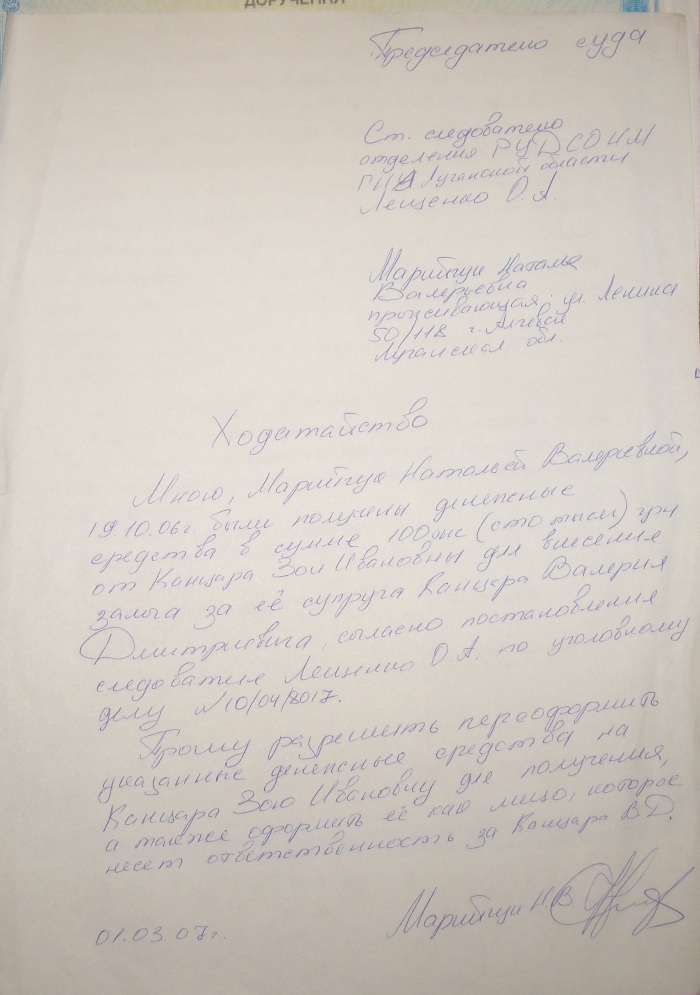 ДОРУЧЕННЯ
Председателю суда
Ст. следователю
отделения РУД СО НМ
ГНА Луганской области
Лещенко О.А.
Марийчук Наталья
Валерьевна
проживающая: ул. Ленина
50/118 г. Алчевск
Луганская обл.
Ходатайство
Мною, Марийчук Натальей Валериевной,
19.10.06г. были получены денежные
средства в сумме 100тыс (сто тысяч) грн
от Канцара Зои Ивановны для внесения
залога за её супруга Канцара Валерия
Дмитриевича, согласно постановления
следователя Лещенко О.А. по уголовному
делу №10/04/8017.
Прошу разрешить переоформить
указанные денежные средства на
Канцара Зою Ивановну для получения,
а также оформить её как лицо, которое
несет ответственность за Канцара В.Д.
Марийчук Н.В.
01.03.07г.